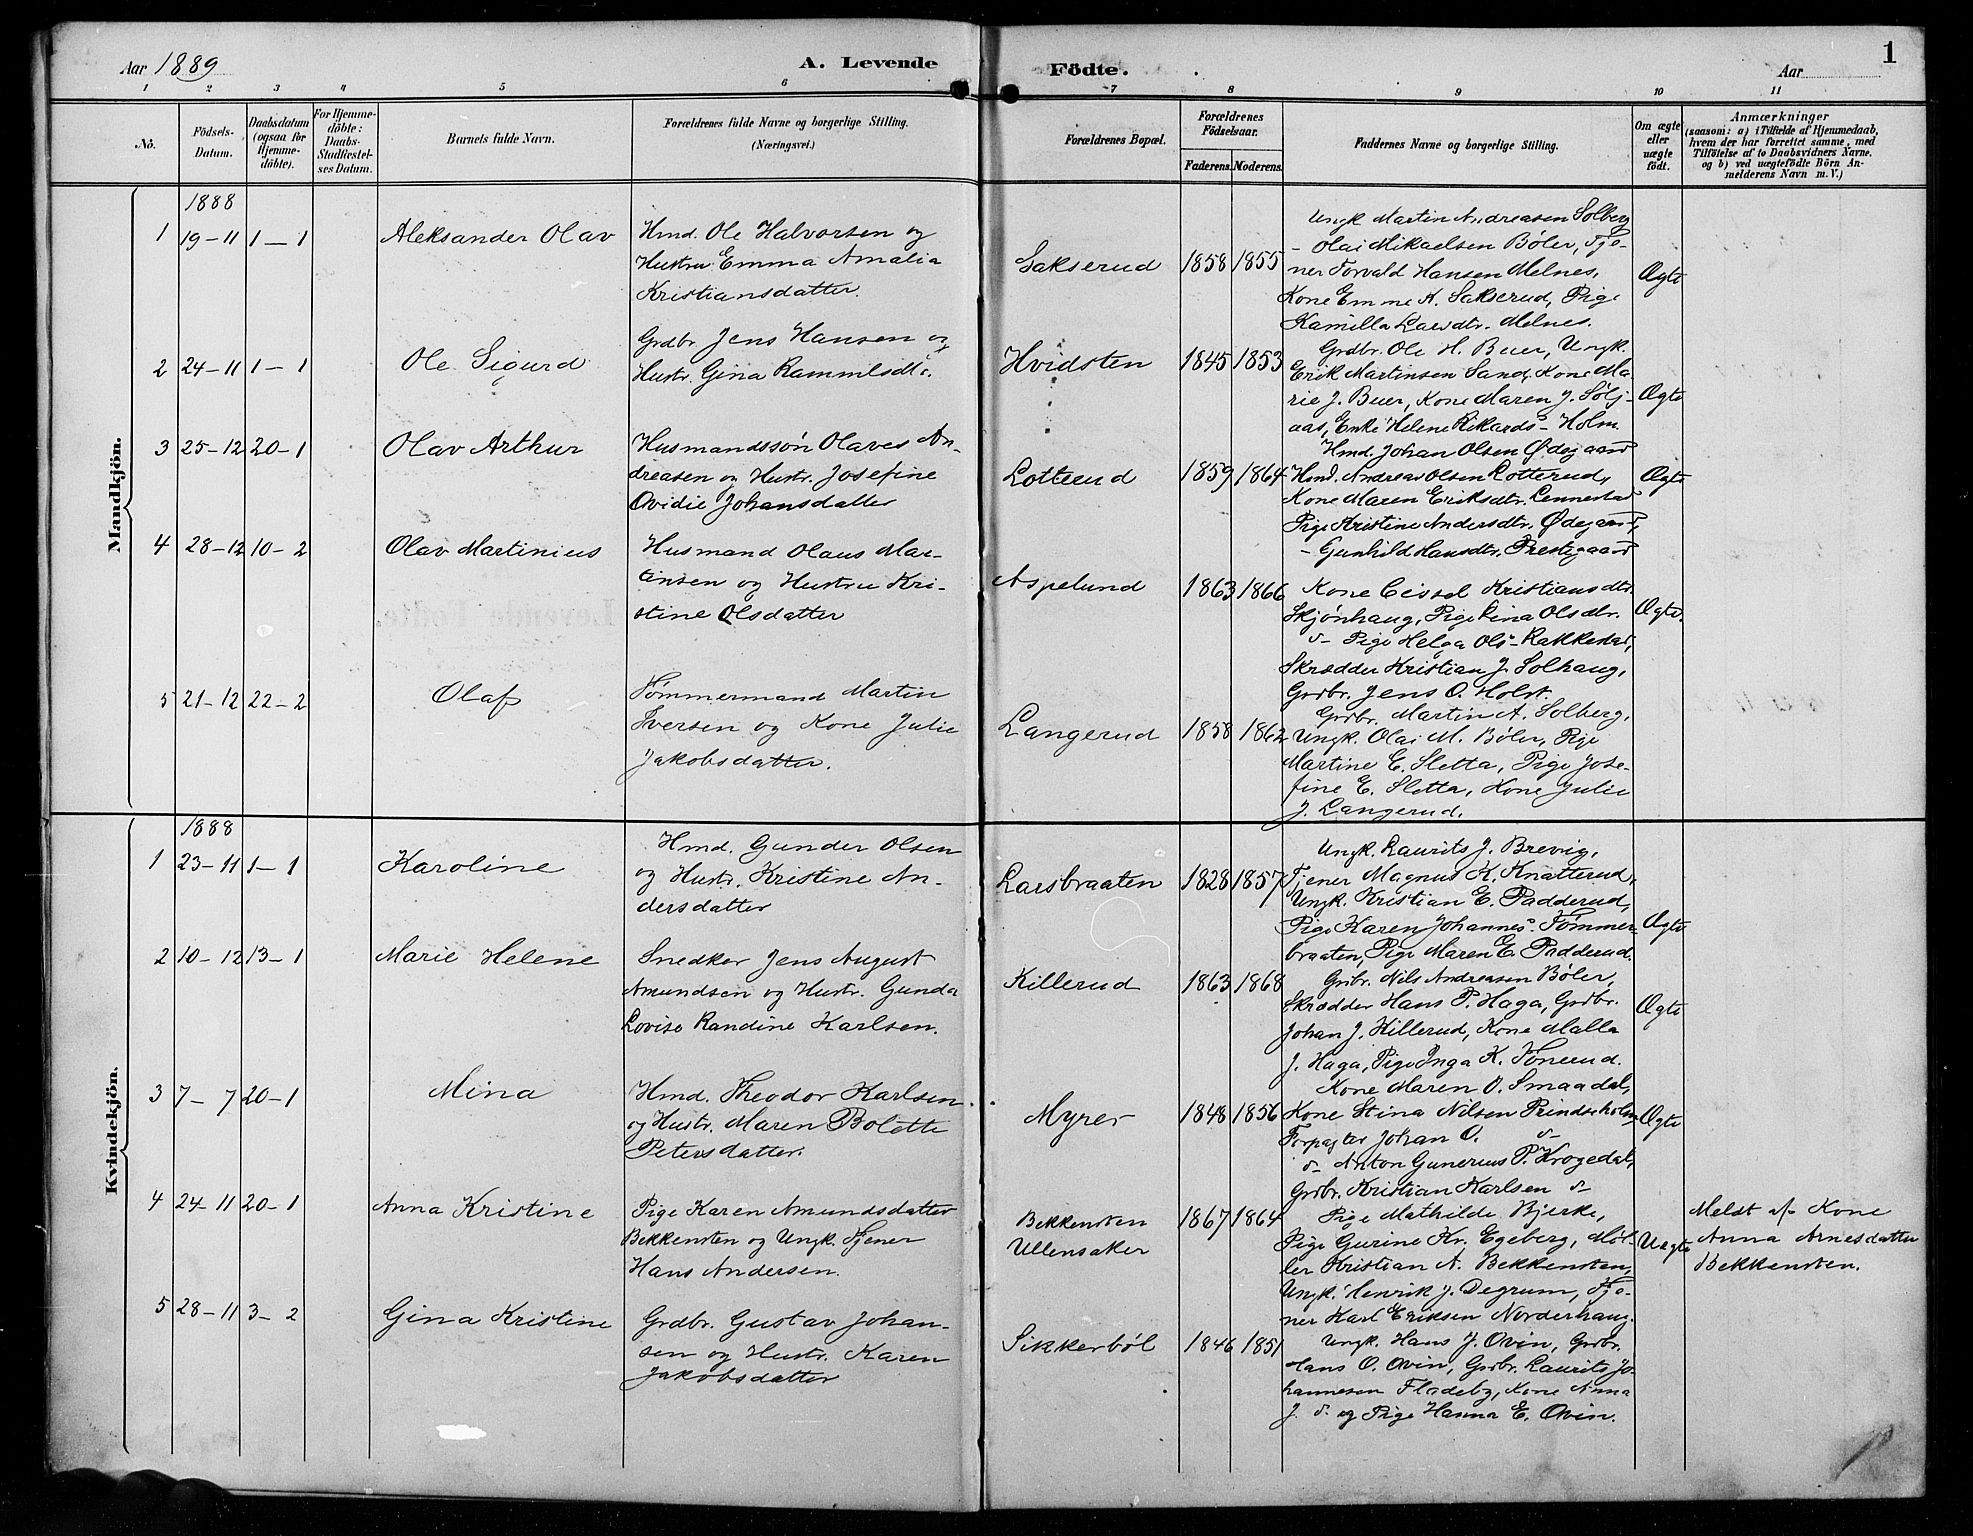 Aar 1889
A. Levende Födte.
Aar
1
1 2 3 4 5 6 7 8 9 10 11
No.
Födsels-Datum.
Daabsdatum (ogsaa for Hjemmedöbte).
For Hjemmedöbte: Daabs-Stadfæstelses Datum.
Barnets fulde Navn.
Forældrenes fulde Navne og borgerlige Stilling.
(Næringsvei.)
Forældrenes Bopæl.
Forældrenes Födselsaar.
Faderens. Moderens.
Faddernes Navne og borgerlige Stilling.
Om ægte eller uægte födt.
Anmærkninger
(saasom: a) i Tilfælde af Hjemmedaab,
hvem der har forrettet samme, med
Tilföielse af to Daabsvidners Navne,
og b) ved uægtefödte Börn An-
melderens Navn m. V.)
Mandkjön.
1888
1 19-11 1-1 Aleksander Olav
Hmd. Ole Halvorsen og
Hustru Emma Amalia
Kristiansdatter.
Sakserud 1858 1855
Ungk. Martin Andreasen Solberg
- Olai Mikaelsen Bøler, Tje-
ner Torvald Hansen Melnes,
Kone Emme K. Sakserud, Pige
Kamilla Larsdtr. Melnes.
Ægte
2 24-11 1-1 Ole Sigurd
Grdbr. Jens Hansen og
Hustr. Gina
Hvidsten 1845 1853
Grdbr. Ole H. Buer, Ungk.
Erik Martinsen Sand, Kone Ma-
rie J. Buer, Kone Maren J. Sølj-
aas, Enke Helene Rikards- Holm
Ægte
3 25-12 20-1 Olav Arthur
Husmandssøn Olaves An-
dreasen og Hustr. Josefine
Ovidie Johansdatter
Lotterud 1859 1864
Hmd. Johan Olsen Ødegaard
Hmd. Andreas Olsen Lotterud,
Kone Maren Eriksdtr. Lennestad
Pige Kristine Andersdtr. Ødegaard,
- Gunhild Hansdtr. Prestegaard
Ægte
4 28-12 10-2 Olav Martinius
Husmand Olaus Mar-
tinsen og Hustru Kri-
stine Olsdatter
Aspelund 1863 1866
Kone Eivsel Kristiansdtr.
Skjønhaug, Pige Lina Olsdtr.
d- Pige Helga Ols- Rakkestad,
Skrædder Kristian J. Solhaug,
Grdbr. Jens O. Holst.
Ægte.
5 21-12 22-2 Olaf
Tømmermand Martin
Iversen og Kone Julie
Jakobsdatter.
Langerud 1858 1862
Grdbr. Martin A. Solberg,
Ungk. Olai M. Bøler, Pige
Martine E. Sletta, Pige Jose-
fine E. Sletta, Kone Julie
J. Langerud.
Kvindekjön.
1888
1 23-11 1-1 Karoline
Hmd. Gunder Olsen
og Hustr. Kristine An-
dersdatter
Larsbraaten 1828 1857
Ungk. Laurits J. Brevig,
Tjener Magnus K. Knatterud,
Ungk. Kristian E. Padderud,
Pige Karen Johannes- Tømmer-
braaten, Pige Maren E. Padderud.
Ægte
2 10-12 13-1 Marie Helene
Snedker Jens August
Amundsen og Hustr. Gunda
Lovise Randine Karlsen.
Killerud 1863 1868
Grdbr. Nils Andreasen Bøler,
Skrædder Hans P. Haga, Grdbr.
Johan J. Killerud, Kone Malla
J. Haga, Pige Inga K. Tønerud.
Ægte
3 7-7 20-1 Mina
Hmd. Theodor Karlsen
og Hustr. Maren Bolette
Petersdatter.
Myrer 1848 1856
Kone Maren O. Smaadal,
Kone Stina Nilsen Prindseholm
Forpagter Johan O. d-
d- Anton Gunerius P. Krogedal,
Grdbr. Kristian Karlsen d-
Ægte
4 24-11 20-1 Anna Kristine
Pige Karen Amundsdatter
Bekkensten og Ungk. Tjener
Hans Andersen.
Bekkensten
Ullensaker
1867 1864
Pige Mathilde Bjerke,
Pige Gurine Kr. Egeberg, Møl-
ler Kristian A. Bekkensten,
Ungk. Henrik J. Degrum, Tje-
ner Karl Eriksen Norderhaug.
Uægte
Meldt af Kone
Anna Arnesdatter
Bekkensten.
5 28-11 3-2 Gina Kristine
Grdbr. Gustav Johan-
sen og Hustr. Karen
Jakobsdatter
Sikkerbøl 1846 1851
Ungk. Hans J. Ovin, Grdbr.
Hans O. Ovin, Grdbr. Laurits Jo-
hannesen Fladeby, Kone Anna
J. d- og Pige Hanna E. Ovin.